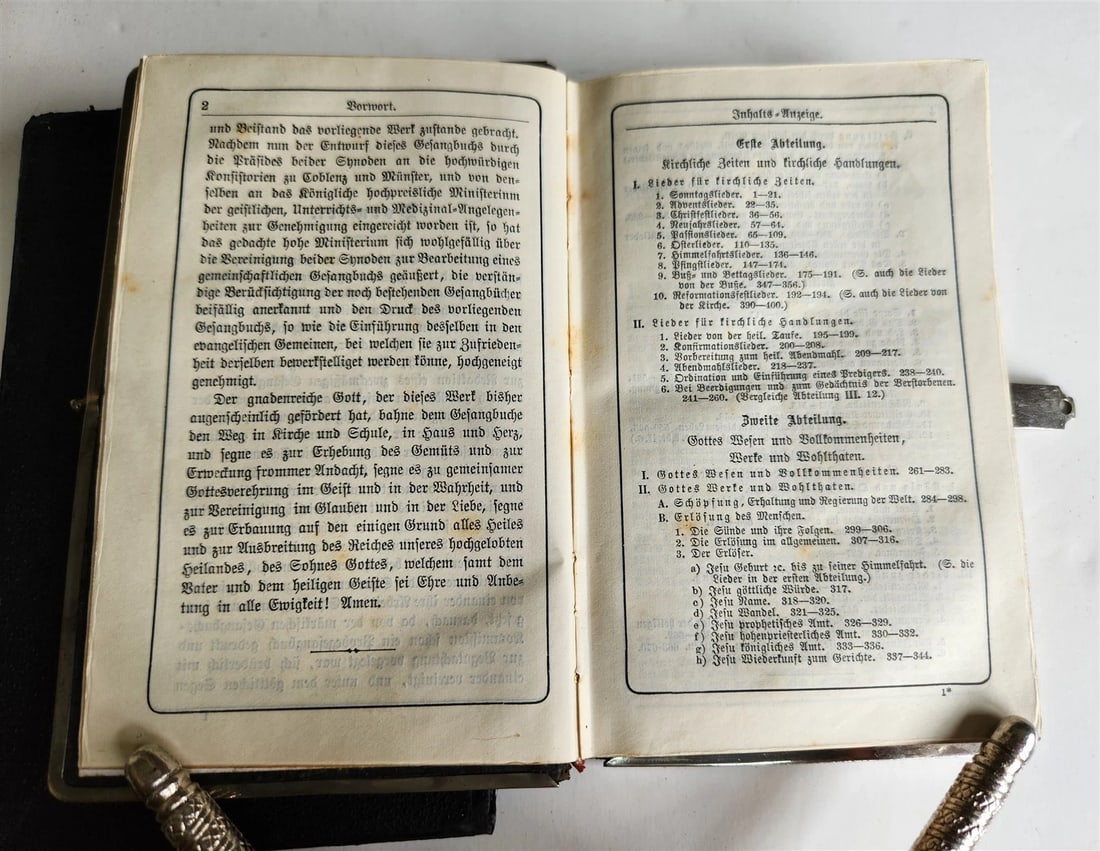 2 Vorwort.
und Beistand das vorliegende Werk zustande gebracht.
Nachdem nun der Entwurf dieses Gesangbuchs durch
die Präsides beider Synoden an die hochwürdigen
Konsistorien zu Coblenz und Münster, und von den-
selben an das Königliche hochpreisliche Ministerium
der geistlichen, Unterrichts- und Medizinal-Angelegen-
heiten zur Genehmigung eingereicht worden ist, so hat
das gedachte hohe Ministerium sich wohlgefällig über
die Vereinigung beider Synoden zur Bearbeitung eines
gemeinschaftlichen Gesangbuchs geäußert, die verstän-
dige Berücksichtigung der noch bestehenden Gesangbücher
beifällig anerkannt und den Druck des vorliegenden
Gesangbuchs, so wie die Einführung desselben in den
evangelischen Gemeinen, bei welchen sie zur Zufrieden-
heit derselben bewerkstelliget werden könne, hochgeneigt
genehmigt.
Der gnadenreiche Gott, der dieses Werk bisher
augenscheinlich gefördert hat, bahne dem Gesangbuche
den Weg in Kirche und Schule, in Haus und Herz,
und segne es zur Erhebung des Gemüts und zur
Erweckung frommer Andacht, segne es zu gemeinsamer
Gottesverehrung im Geist und in der Wahrheit, und
zur Vereinigung im Glauben und in der Liebe, segne
es zur Erbauung auf den einigen Grund alles Heiles
und zur Ausbreitung des Reiches unseres hochgelobten
Heilandes, des Sohnes Gottes, welchem samt dem
Vater und dem heiligen Geiste sei Ehre und Anbe-
tung in alle Ewigkeit! Amen.
Inhalts-Anzeige.
Erste Abteilung.
Kirchliche Zeiten und kirchliche Handlungen.
I. Lieder für kirchliche Zeiten.
1. Sonntagslieder. 1—21.
2. Adventslieder. 22—35.
3. Christfestlieder. 36—56.
4. Neujahrslieder. 57—64.
5. Passionslieder. 65—109.
6. Osterlieder. 110—135.
7. Himmelfahrtslieder. 136—146.
8. Pfingstlieder. 147—174.
9. Buß- und Bettagslieder. 175—191. (S. auch die Lieder
von der Buße. 347—356.)
10. Reformationsfestlieder. 192—194. (S. auch die Lieder von
der Kirche. 390—400.)
II. Lieder für kirchliche Handlungen.
1. Lieder von der heil. Taufe. 195—199.
2. Konfirmationslieder. 200—208.
3. Vorbereitung zum heil. Abendmahl. 209—217.
4. Abendmahlslieder. 218—237.
5. Ordination und Einführung eines Predigers. 238—240.
6. Bei Beerdigungen und zum Gedächtnis der Verstorbenen.
241—260. (Vergleiche Abteilung III. 12.)
Zweite Abteilung.
Gottes Wesen und Vollkommenheiten,
Werke und Wohlthaten.
I. Gottes Wesen und Vollkommenheiten. 261—283.
II. Gottes Werke und Wohlthaten.
A. Schöpfung, Erhaltung und Regierung der Welt. 284—298.
B. Erlösung des Menschen.
1. Die Sünde und ihre Folgen. 299—306.
2. Die Erlösung im allgemeinen. 307—316.
3. Der Erlöser.
a) Jesu Geburt ꝛc. bis zu seiner Himmelfahrt. (S. die
Lieder in der ersten Abteilung.)
b) Jesu göttliche Würde. 317.
c) Jesu Name. 318—320.
d) Jesu Wandel. 321—325.
e) Jesu prophetisches Amt. 326—329.
f) Jesu hohenpriesterliches Amt. 330—332.
g) Jesu königliches Amt. 333—336.
h) Jesu Wiederkunft zum Gerichte. 337—344.
1*